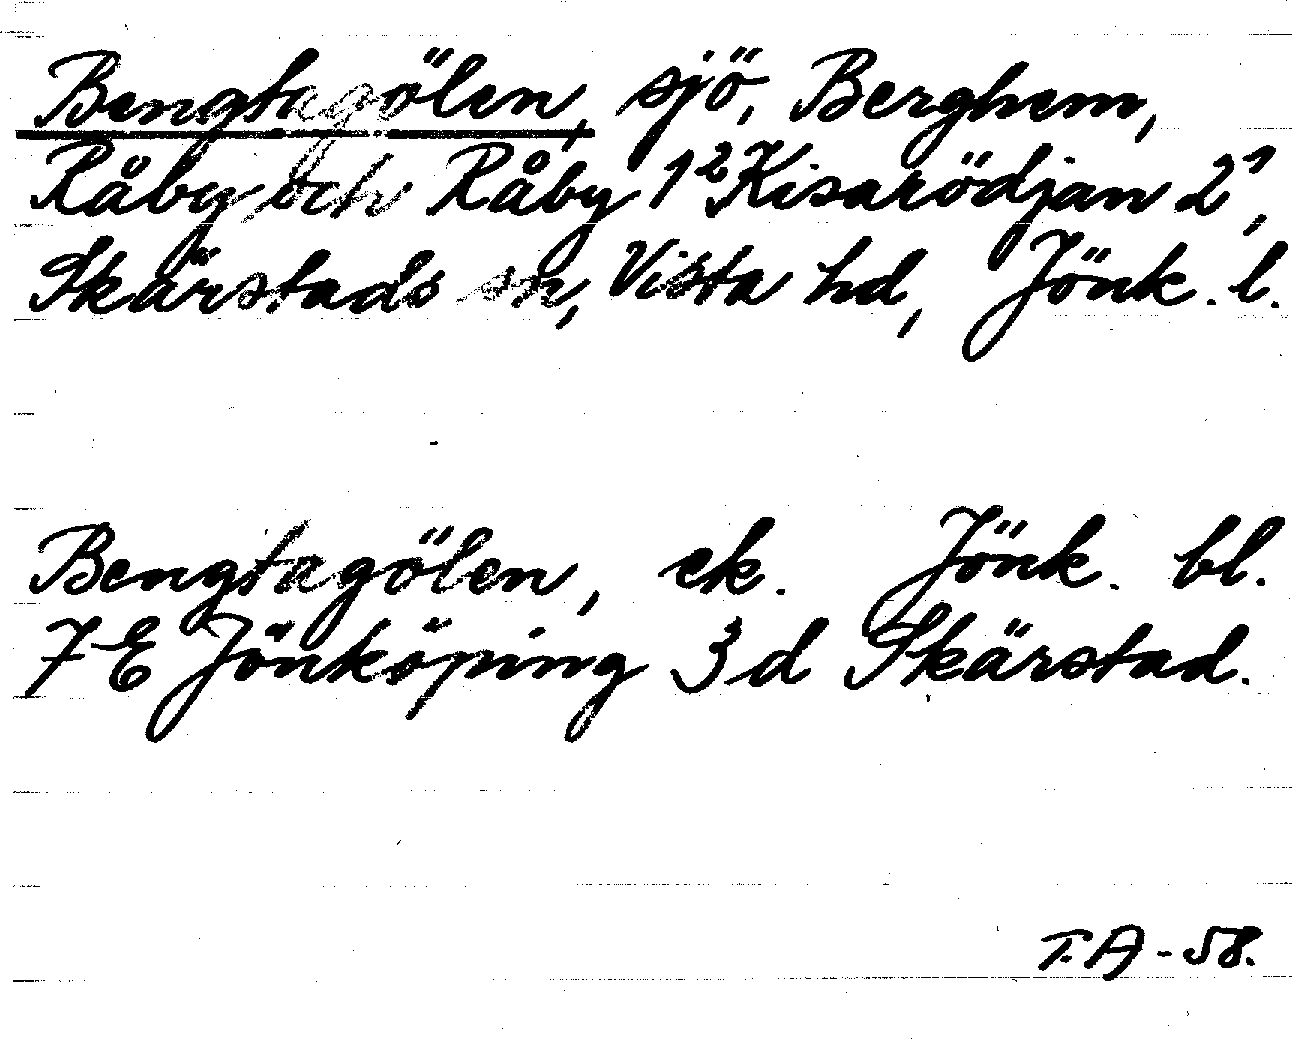 Bengtagölen, sjö, Berghem,
Råby och Råby 1² Kisarödjan 2¹,
Skärstads sn, Vista hd, Jönk. l.
Bengtagölen, ek. Jönk. bl.
7 E Jönköping 3 d Skärstad.
T.A -58.